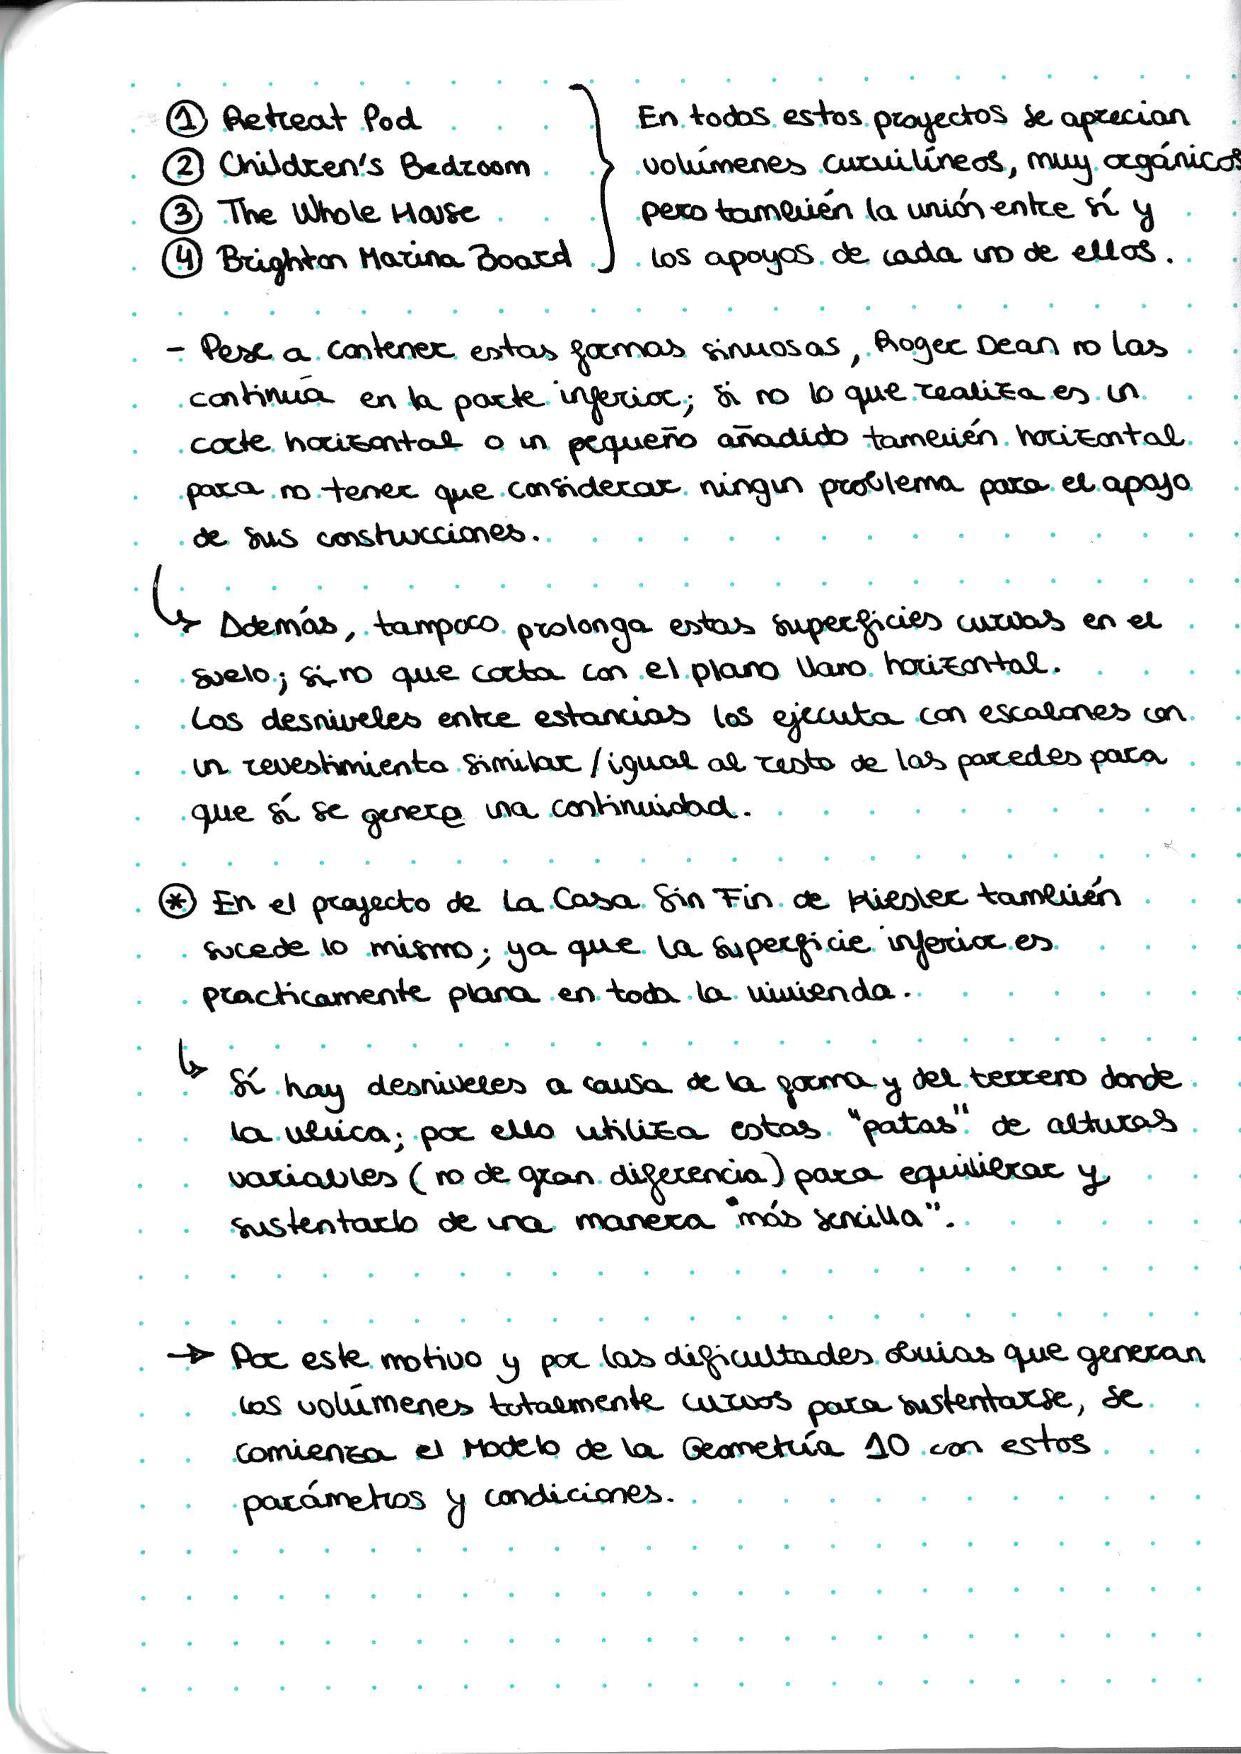 ① Retreat Pod
② Children's Bedroom
③ The Whole House
④ Brighton Marina Board
En todos estos proyectos se aprecian
volúmenes curvilíneos, muy orgánicos
pero también la unión entre sí y
los apoyos de cada uno de ellos.
- Pese a contener estas formas sinuosas, Roger Dean no las
continúa en la parte inferior; si no lo que realiza es un
corte horizontal o un pequeño añadido también horizontal
para no tener que considerar ningún problema para el apoyo
de sus construcciones.
↳ Además, tampoco prolonga estas superficies curvas en el
suelo; si no que corta con el plano llano horizontal.
Los desniveles entre estancias los ejecuta con escalones con
un revestimiento similar / igual al resto de las paredes para
que sí se genere una continuidad.
⊛ En el proyecto de La Casa Sin Fin de Kiesler también
sucede lo mismo; ya que la superficie inferior es
practicamente plana en toda la vivienda.
↳ Sí hay desniveles a causa de la forma y del terreno donde
la ubica; por ello utiliza estas "patas" de alturas
variables (no de gran diferencia) para equilibrar y
sustentarlo de una manera "más sencilla".
→ Por este motivo y por las dificultades obvias que generan
los volúmenes totalmente curvos para sustentarse, se
comienza el Modelo de la Geometría 10 con estos
parámetros y condiciones.